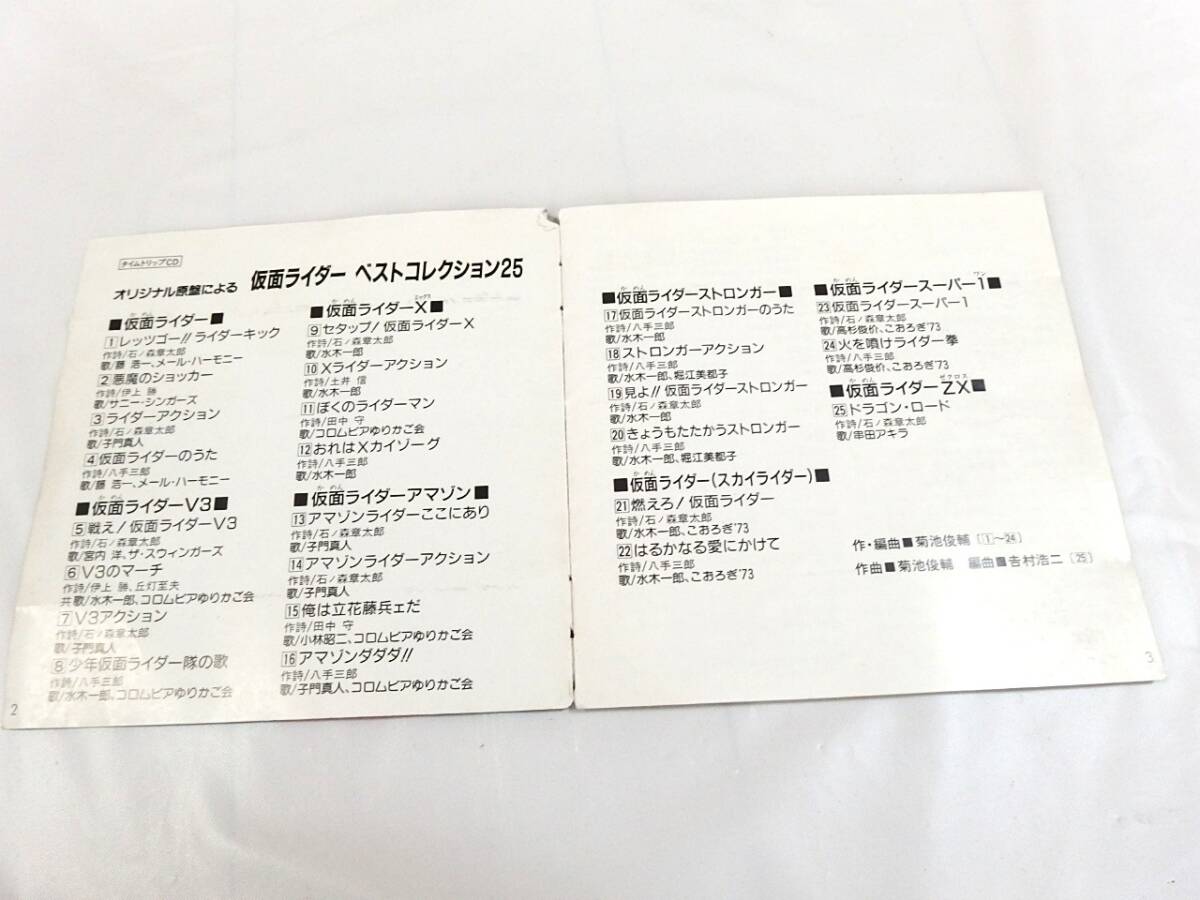 タイムトリップCD
オリジナル原盤による 仮面ライダー ベストコレクション25
■仮面ライダー■
かめん
1 レッツゴー!! ライダーキック
作詩/石ノ森章太郎
歌/藤 浩一、メール・ハーモニー
2 悪魔のショッカー
作詩/伊上 勝
歌/サニー・シンガーズ
3 ライダーアクション
作詩/石ノ森章太郎
歌/子門真人
4 仮面ライダーのうた
作詩/八手三郎
歌/藤 浩一、メール・ハーモニー
■仮面ライダーV3■
かめん
5 戦え! 仮面ライダーV3
作詩/石ノ森章太郎
歌/宮内 洋、ザ・スウィンガーズ
6 V3のマーチ
作詩/伊上 勝、丘灯至夫
共歌/水木一郎、コロムビアゆりかご会
7 V3アクション
作詩/石ノ森章太郎
歌/子門真人
8 少年仮面ライダー隊の歌
作詩/八手三郎
歌/水木一郎、コロムビアゆりかご会
2
■仮面ライダーX■
かめん エックス
9 セタップ! 仮面ライダーX
作詩/石ノ森章太郎
歌/水木一郎
10 Xライダーアクション
作詩/土井 信
歌/水木一郎
11 ぼくのライダーマン
作詩/田中 守
歌/コロムビアゆりかご会
12 おれはXカイゾーグ
作詩/八手三郎
歌/水木一郎
■仮面ライダーアマゾン■
かめん
13 アマゾンライダーここにあり
作詩/石ノ森章太郎
歌/子門真人
14 アマゾンライダーアクション
作詩/石ノ森章太郎
歌/子門真人
15 俺は立花藤兵ェだ
作詩/田中 守
歌/小林昭二、コロムビアゆりかご会
16 アマゾンダダダ!!
作詩/八手三郎
歌/子門真人、コロムビアゆりかご会
■仮面ライダーストロンガー■
かめん
17 仮面ライダーストロンガーのうた
作詩/八手三郎
歌/水木一郎
18 ストロンガーアクション
作詩/八手三郎
歌/水木一郎、堀江美都子
19 見よ!! 仮面ライダーストロンガー
作詩/石ノ森章太郎
歌/水木一郎
20 きょうもたたかうストロンガー
作詩/八手三郎
歌/水木一郎、堀江美都子
■仮面ライダー(スカイライダー)■
かめん
21 燃えろ! 仮面ライダー
作詩/石ノ森章太郎
歌/水木一郎、こおろぎ'73
22 はるかなる愛にかけて
作詩/八手三郎
歌/水木一郎、こおろぎ'73
■仮面ライダースーパー1■
かめん ワン
23 仮面ライダースーパー1
作詩/石ノ森章太郎
歌/高杉俊价、こおろぎ'73
24 火を噴けライダー拳
作詩/八手三郎
歌/高杉俊价、こおろぎ'73
■仮面ライダーZX■
かめん ゼクロス
25 ドラゴン・ロード
作詩/石ノ森章太郎
歌/串田アキラ
作・編曲■菊池俊輔〔1〜24〕
作曲■菊池俊輔 編曲■吉村浩二〔25〕
3